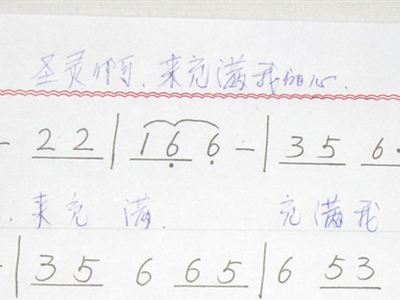 圣灵啊,来充满我的心.
- 22 | 166 - | 35 6·
. 来充 满. 充满我
35 6 65 | 6 53